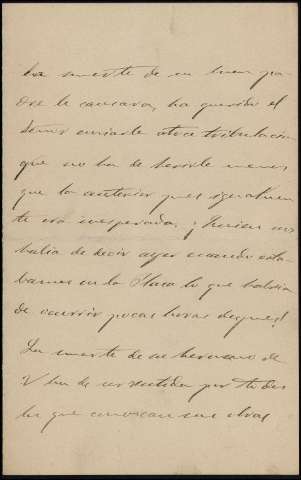 la muerte de su buen pa-
dre le causara, ha querido el
Señor enviarle otra tribulación
que no ha de herirle menos
que la anterior pues igualmen
te era inesperada. ¡Quien nos
habia de decir ayer cuando esta-
bamos en la Plaza lo que habia
de ocurrir pocas horas despues!
La muerte de su hermano de
V ha de ser sentida por todos
los que conozcan sus obras